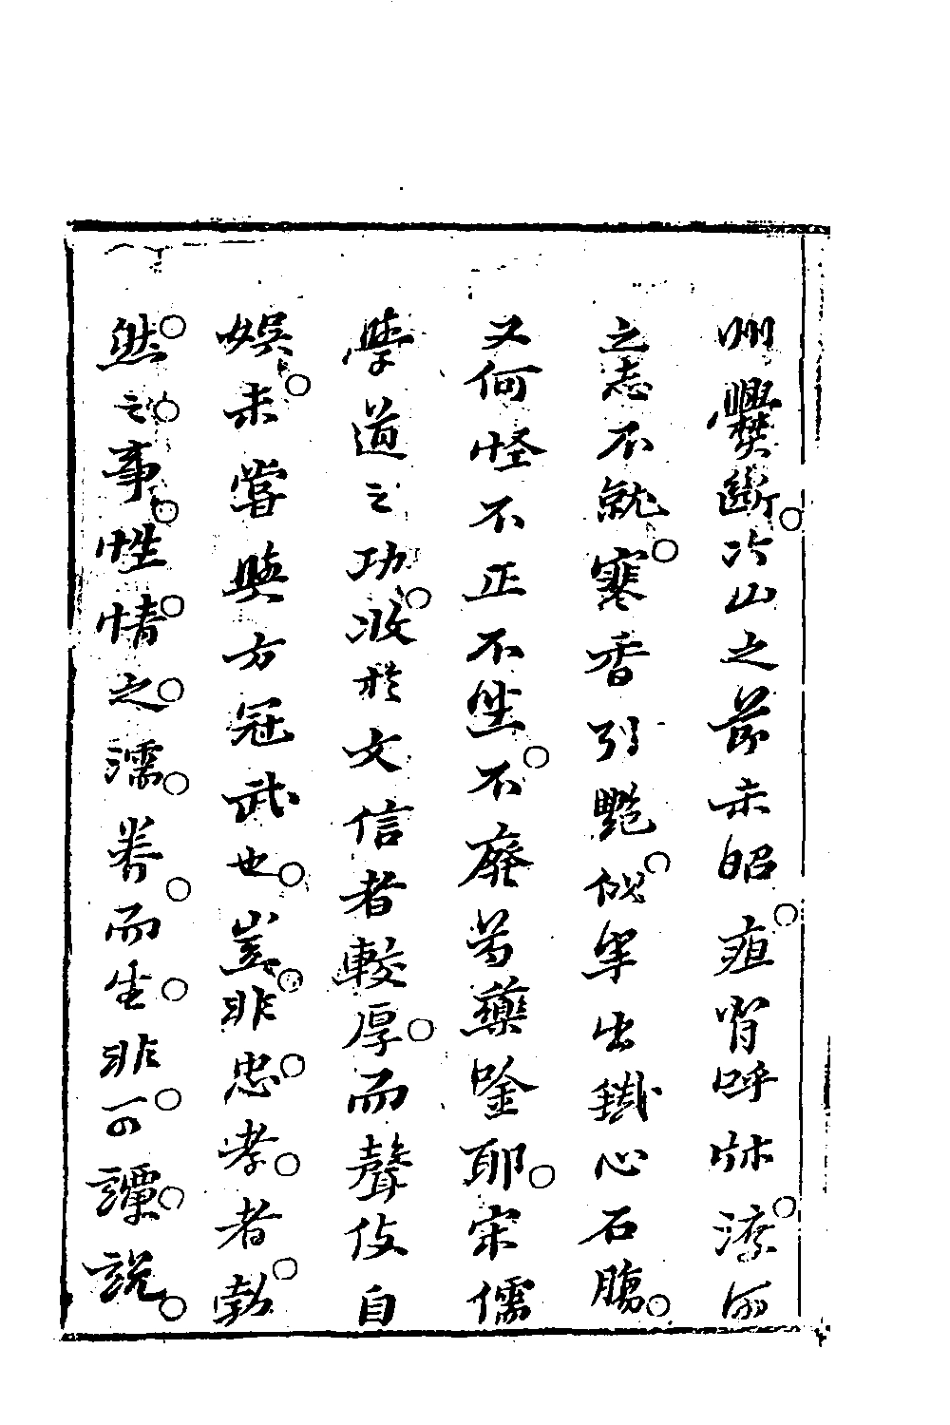 州爨斷冰山之節未昭疽背呼牀潦洏
之志不就寒香引艷似單出鐵心石腸
又何怪不正不坐不廢芍藥唫耶宋儒
學道之功收於文信者較厚而聲伎自
娛未嘗與方冠武也豈非忠孝者勃
然之事性情之濡養而生非可譚說